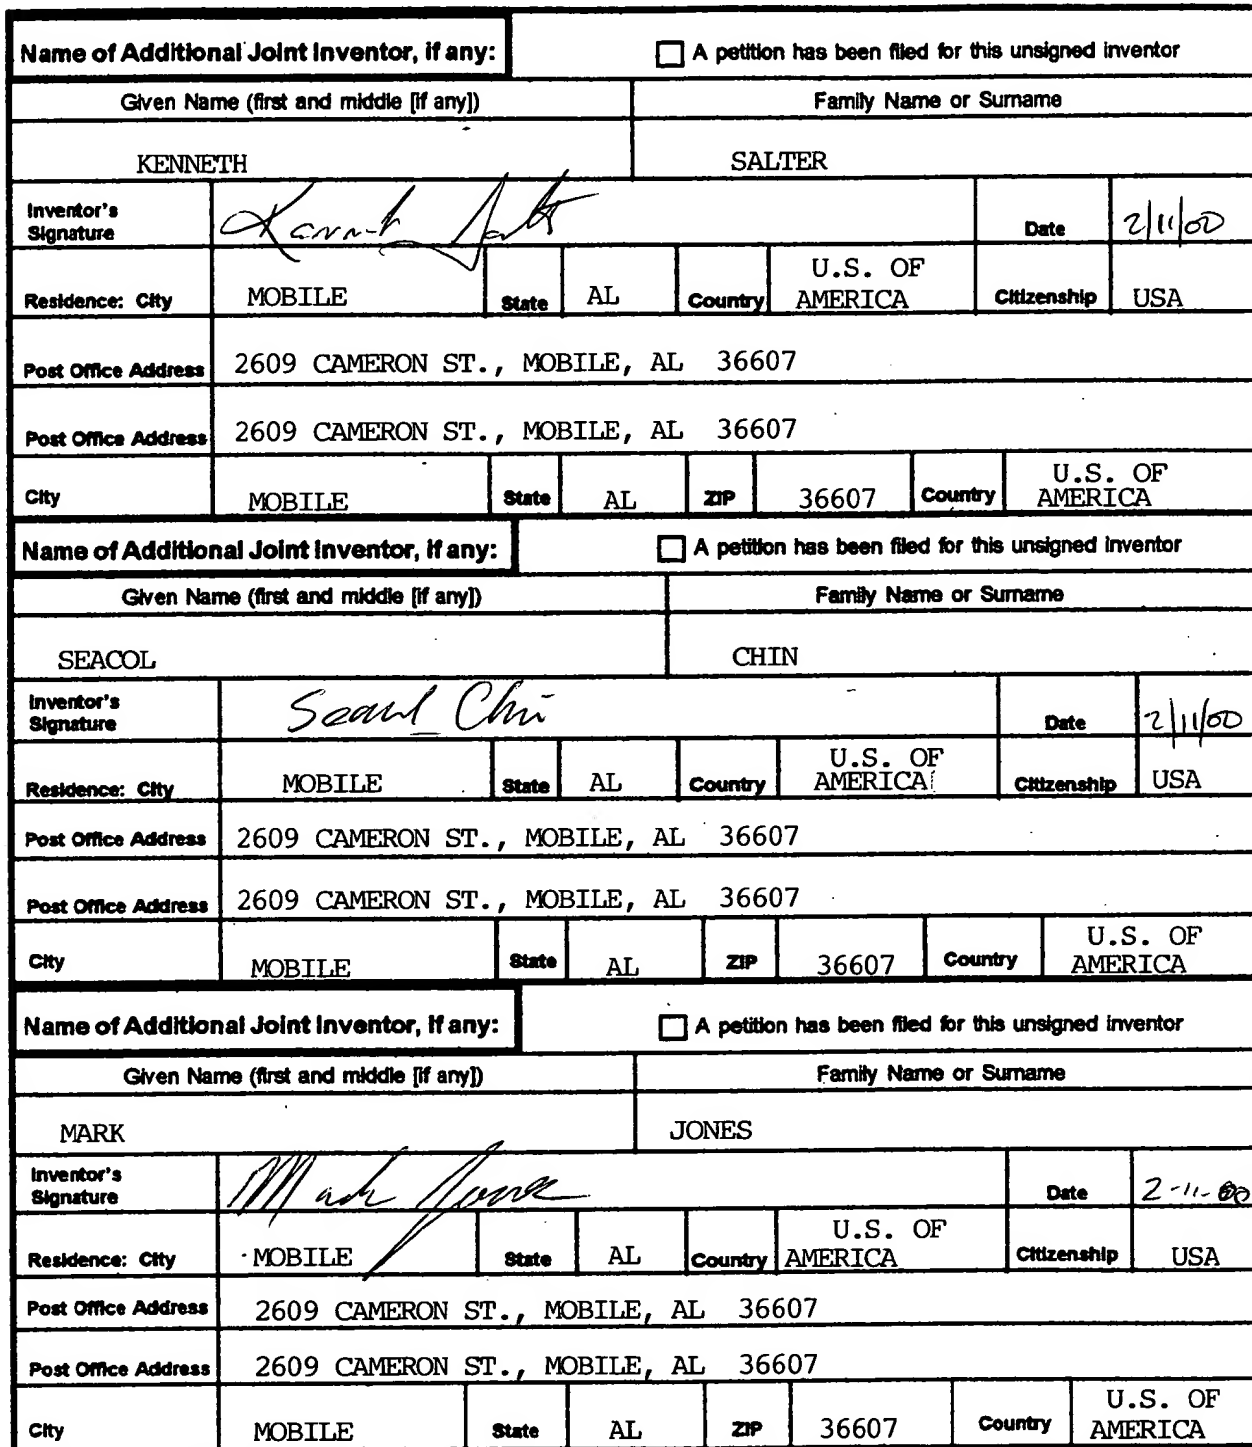 Name of Additional Joint Inventor, if any: A petition has been filed for this unsigned inventor
Given Name (first and middle [if any]) Family Name or Surname
KENNETH SALTER
Inventor's Signature Date 2/11/00
Residence: City MOBILE State AL Country U.S. OF AMERICA Citizenship USA
Post Office Address 2609 CAMERON ST., MOBILE, AL 36607
Post Office Address 2609 CAMERON ST., MOBILE, AL 36607
City MOBILE State AL ZIP 36607 Country U.S. OF AMERICA
Name of Additional Joint Inventor, if any: A petition has been filed for this unsigned inventor
Given Name (first and middle [if any]) Family Name or Surname
SEACOL CHIN
Inventor's Signature Seacol Chin Date 2/11/00
Residence: City MOBILE State AL Country U.S. OF AMERICA Citizenship USA
Post Office Address 2609 CAMERON ST., MOBILE, AL 36607
Post Office Address 2609 CAMERON ST., MOBILE, AL 36607
City MOBILE State AL ZIP 36607 Country U.S. OF AMERICA
Name of Additional Joint Inventor, if any: A petition has been filed for this unsigned inventor
Given Name (first and middle [if any]) Family Name or Surname
MARK JONES
Inventor's Signature Mark Jones Date 2-11-00
Residence: City MOBILE State AL Country U.S. OF AMERICA Citizenship USA
Post Office Address 2609 CAMERON ST., MOBILE, AL 36607
Post Office Address 2609 CAMERON ST., MOBILE, AL 36607
City MOBILE State AL ZIP 36607 Country U.S. OF AMERICA